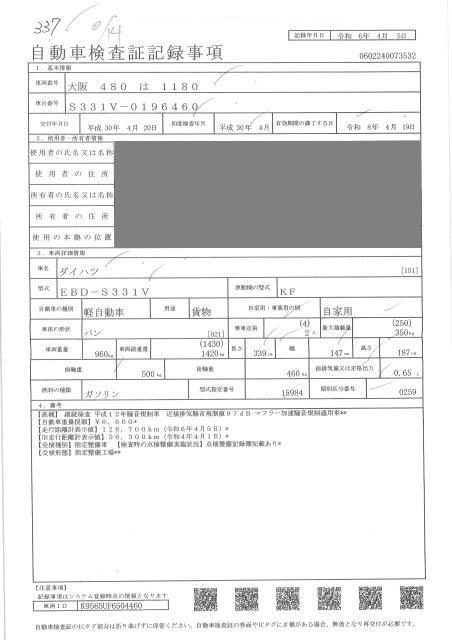 337
10/14
記録年月日 令和 6年 4月 5日
自動車検査証記録事項
0602240073532
1．基本情報
車両番号 大阪 480 は 1180
車台番号 S331V-0196460
交付年月日 平成 30年 4月 20日 初度検査年月 平成 30年 4月 有効期間の満了する日 令和 8年 4月 19日
2．使用者・所有者情報
使用者の氏名又は名称
使用者の住所
所有者の氏名又は名称
所有者の住所
使用の本拠の位置
3．車両詳細情報
車名 ダイハツ [151]
型式 EBD-S331V 原動機の型式 KF
自動車の種別 軽自動車 用途 貨物 自家用・事業用の別 自家用
車体の形状 バン [021] 乗車定員 (4) 2人 最大積載量 (250) 350kg
車両重量 960kg 車両総重量 (1430) 1420kg 長さ 339cm 幅 147cm 高さ 187cm
前軸重 500kg 後軸重 460kg 総排気量又は定格出力 0.65L
燃料の種類 ガソリン 型式指定番号 15984 類別区分番号 0259
4．備考
【高槻】 継続検査 平成12年騒音規制車 近接排気騒音規制値97dB マフラー加速騒音規制適用車**
【自動車重量税額】¥6,600*
【走行距離計表示値】128,700km（令和6年4月5日）*
【旧走行距離計表示値】96,300km（令和4年4月1日）*
【受検種別】指定整備車 【検査時の点検整備実施状況】点検整備記録簿記載あり*
【受検形態】指定整備工場**
【注意事項】
記録事項はシステム登録時点の情報となります
車両ID K9565UF6504460
自動車検査証のICタグ部分は折り曲げずに保管ください。自動車検査証の券面やICタグに き損がある場合、無効となり再交付が必要です。